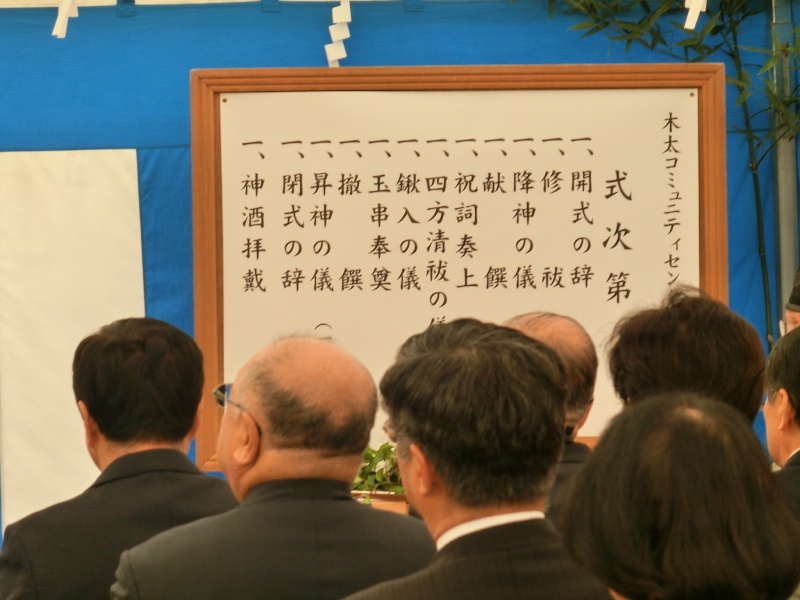 木太コミュニティセン
式次第
一、開式の辞
一、修祓
一、降神の儀
一、献饌
一、祝詞奏上
一、四方清祓の儀
一、鍬入の儀
一、玉串奉奠
一、撤饌
一、昇神の儀（
一、閉式の辞
一、神酒拝戴